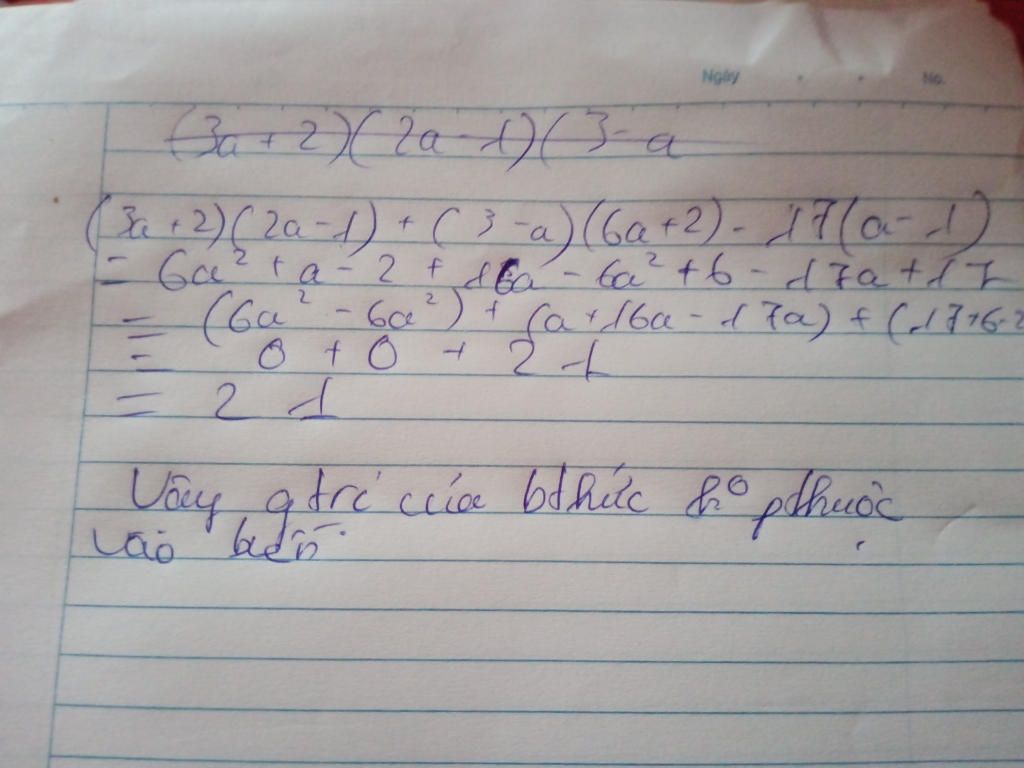 Ngày
No.
(3a + 2)(2a - 1)(3 - a
(3a + 2)(2a - 1) + (3 - a)(6a + 2) - 17(a - 1)
= 6a² + a - 2 + 16a - 6a² + 6 - 17a + 17
= (6a² - 6a²) + (a + 16a - 17a) + (17+6-2
= 0 + 0 + 21
= 21
Vậy gtrị của bthức k⁰ pthuộc
vào biến